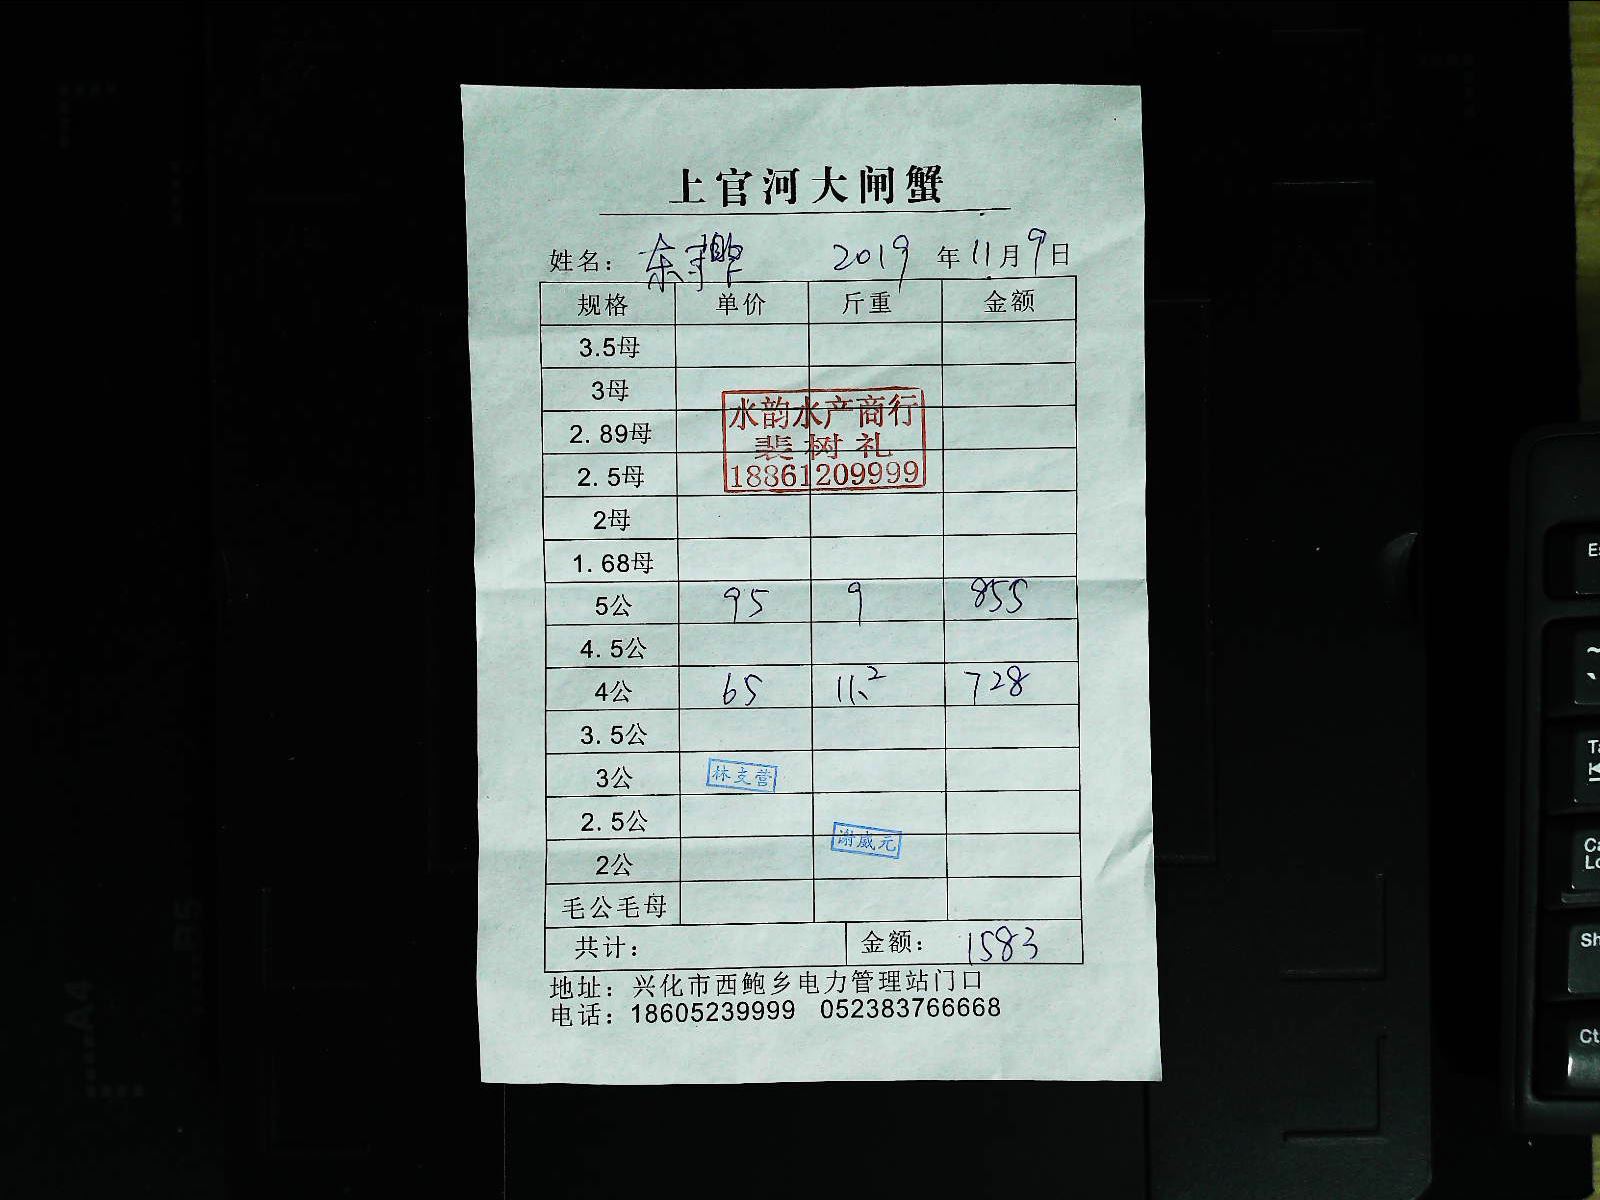 上官河大闸蟹
姓名： 2019 年 11 月 9 日
规格 单价 斤重 金额
3.5母
3母
水韵水产商行
2.89母
裴树礼
2.5母
18861209999
2母
1.68母
5公 95 9 855
4.5公
4公 65 11.2 728
3.5公
3公 林支营
2.5公
谢威元
2公
毛公毛母
共计： 金额： 1583
地址：兴化市西鲍乡电力管理站门口
电话：18605239999 052383766668
A4
B5
Ctrl